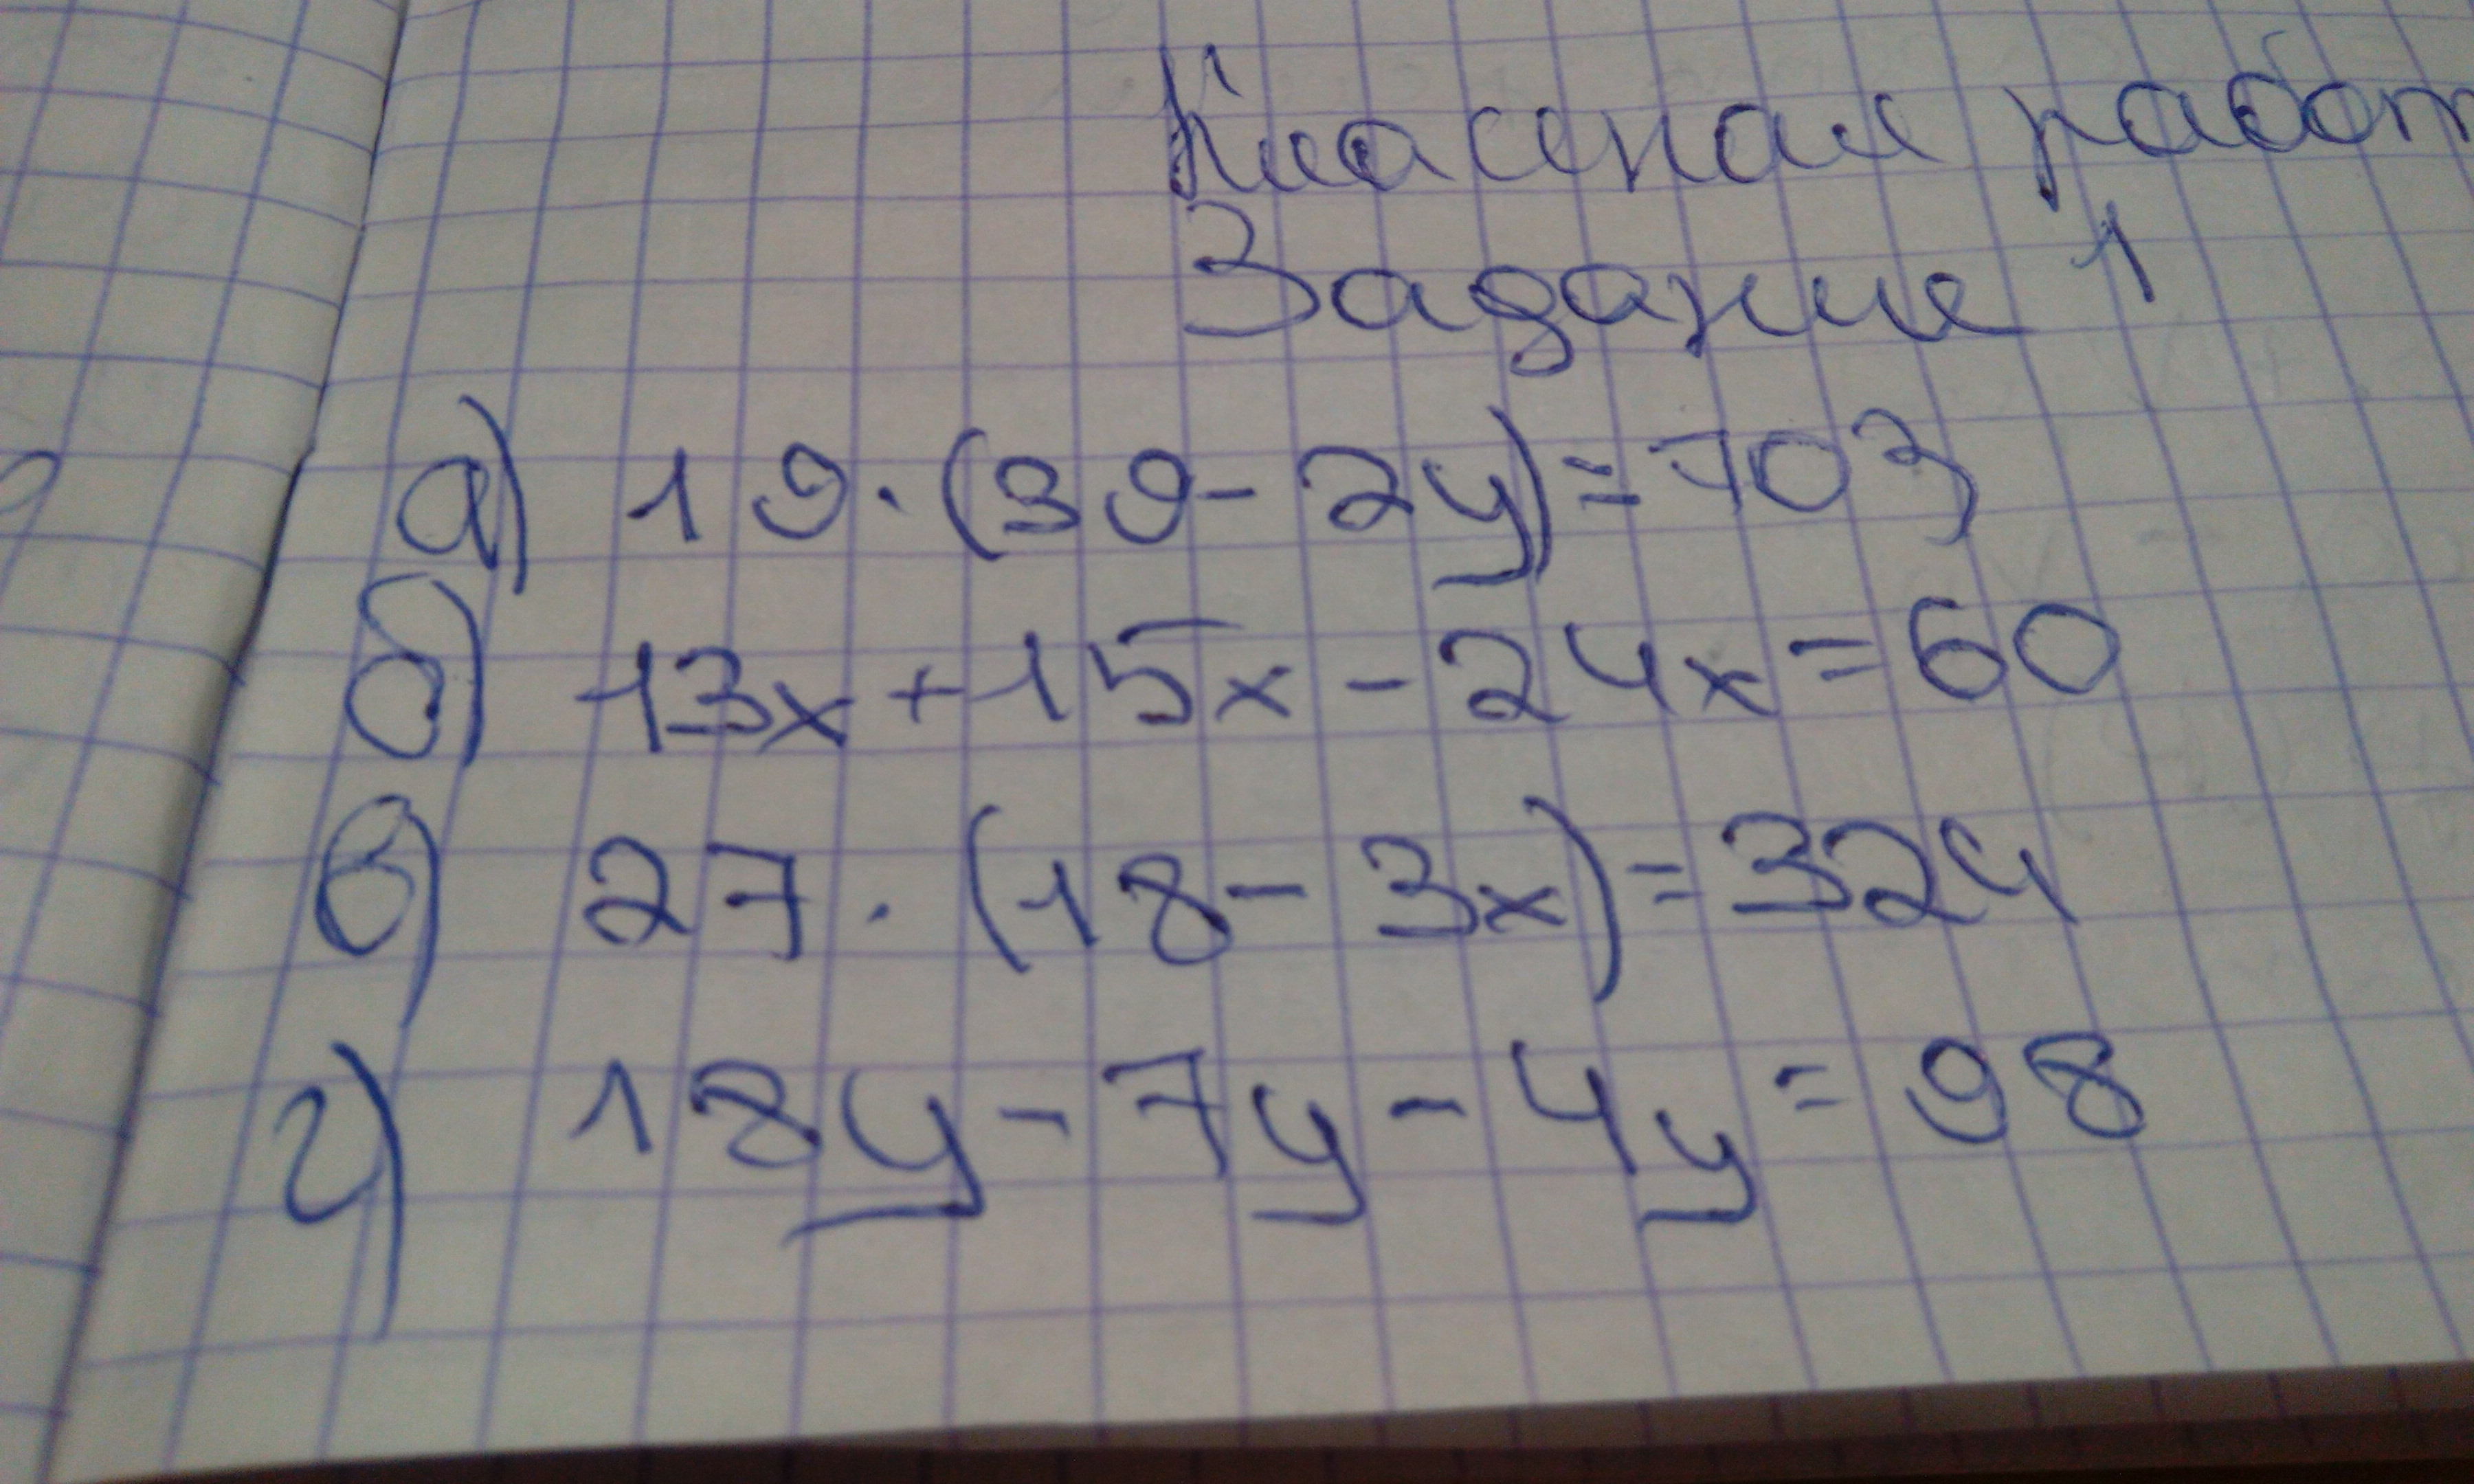 Классная работ
Задание 1
а) 19·(39-2y)=703
б) 13x+15x-24x=60
в) 27·(18-3x)=324
г) 18y-7y-4y=98